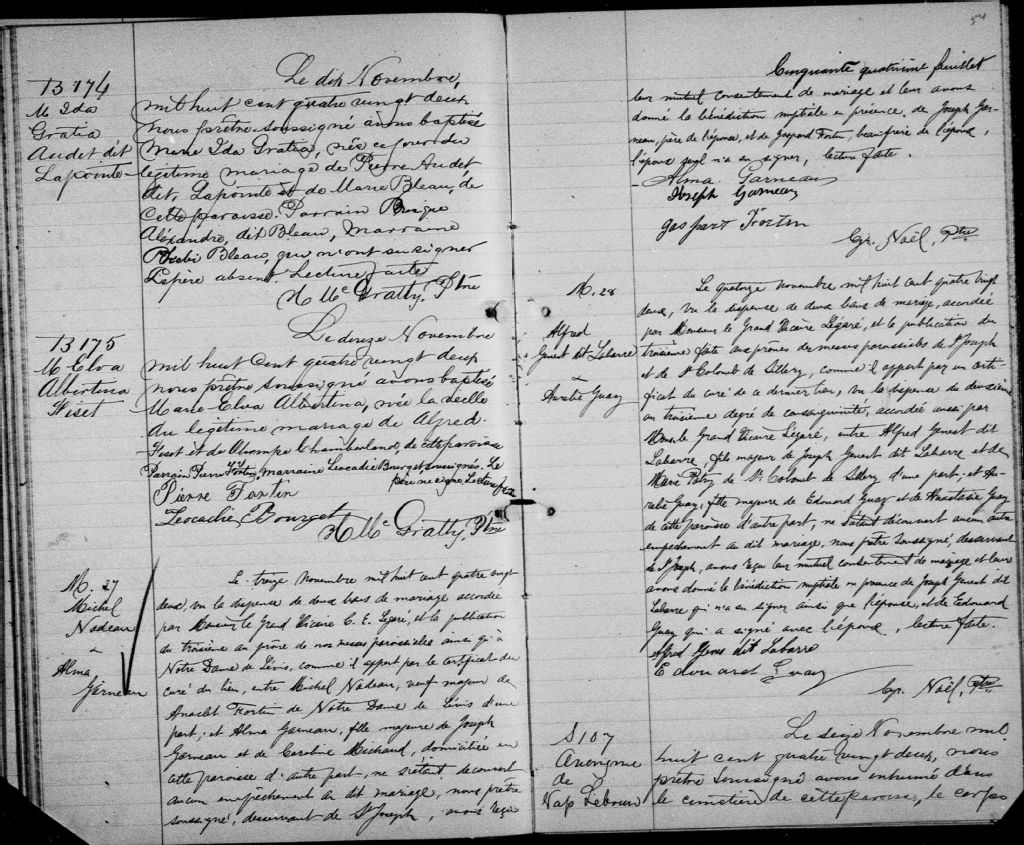 13174
M Ida
Gratia
Audet dit
Lapointe
Le dix Novembre,
mil huit cent quatre vingt deux
nous prêtre soussigné avons baptisé
Marie Ida Gratia, née ce jour du
légitime mariage de Pierre Audet,
dit, Lapointe et de Marie Bleau, de
cette paroisse. Parrain
Aléxandre, dit Bleau, Marraine
Phebi Bleau, qui n'ont su signer
Le père absent. Lecture faite
H Mc Gratty, Ptre
13175
M Elva
Albertina
Fiset
Le douze Novembre
mil huit cent quatre vingt deux
nous prêtre soussigné avons baptisé
Marie-Elva Albertina, née la veille
du légitime mariage de Alfred
Fiset et de Olympe Chamberland, de cette paroisse
Parrain Pierre Fortin, Marraine Leocadie Bourget soussignés. Le
père ne signe, Lecture faite
Pierre Fortin
Leocadie Bourget
H Mc Gratty, Ptre
M. 27
Michel
Nadeau
&
Alma
Garneau
Le treize Novembre mil huit cent quatre vingt
deux, vu la dispense de deux bans de mariage accordée
par Monsieur le Grand Vicaire C. E. Légaré, et la publication
du troisième au prône de nos messes paroissiales ainsi qu'à
Notre Dame de Lévis, comme il appert par le certificat du
curé du lieu, entre Michel Nadeau, veuf majeur de
Anaclet Fortin de Notre Dame de Lévis d'une
part; et Alma Garneau, fille majeure de Joseph
Garneau et de Caroline Michaud, domiciliée en
cette paroisse d'autre part, ne s'étant découvert
aucun empêchement au dit mariage, nous prêtre
soussigné, desservant de St Joseph, avons reçu
54
Cinquante quatrième feuillet
leur mutuel consentement de mariage et leur avons
donné la bénédiction nuptiale en présence de Joseph Gar-
neau, père de l'épouse, et de Gaspard Fortin beau frère de l'époux,
l'époux seul n'a su signer, lecture faite.
Alma Garneau
Joseph Garneau
gaspart Fortin
Cyp. Noël, Ptre
M. 28
Alfred
Genest dit Labarre
&
Aurélie Guay
Le quatorze novembre mil huit cent quatre vingt
deux, vu la dispense de deux bans de mariage, accordée
par Monsieur le Grand Vicaire Légaré, et la publication du
troisième faite aux prônes des messes paroissiales de St Joseph
et de St Colomb de Sillery, comme il appert par un certi-
ficat du curé de ce dernier lieu, vu la dispense du deuxième
au troisième degré de consanguinité, accordée aussi par
Mons. le Grand Vicaire Légaré, entre Alfred Genest dit
Labarre, fils majeur de Joseph Genest dit Labarre et de
Marie Patry de St Colomb de Sillery d'une part; et Au-
rélie Guay, fille majeure de Edouard Guay et de Anastasie Guay
de cette paroisse d'autre part; ne s'étant découvert aucun autre
empêchement au dit mariage, nous prêtre soussigné, desservant
de St Joseph, avons reçu leur mutuel consentement de mariage et leur
avons donné la bénédiction nuptiale en présence de Joseph Genest dit
Labarre qui n'a su signer ainsi que l'épouse, et de Edouard
Guay qui a signé avec l'époux, lecture faite.
Alfred Genes dit Labarre
Edouard Guay
Cyp. Noël, Ptre
S107
Anonyme
de
Nap Lebrun
Le seize Novembre mil
huit cent quatre vingt deux, nous
prêtre soussigné avons inhumé dans
le cimetière de cette paroisse, le corps